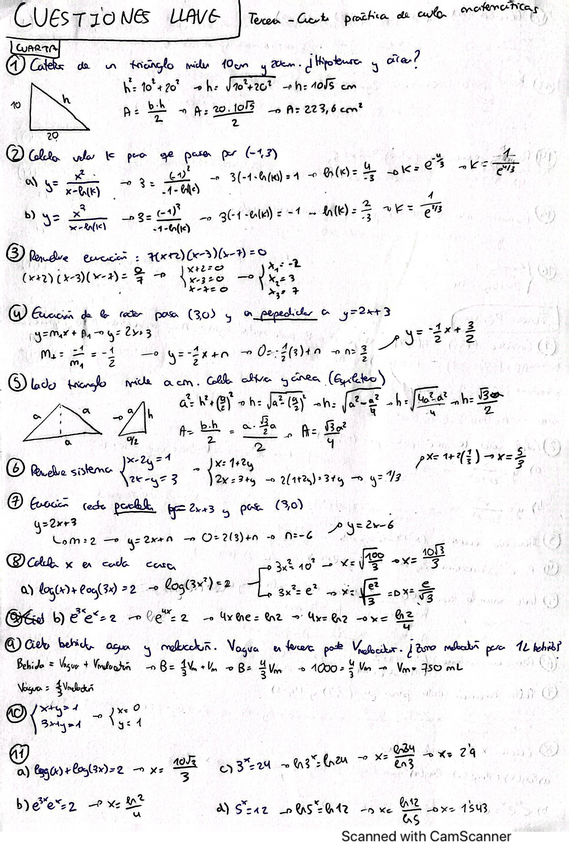 CUESTIONES LLAVE
Tercera - Cuarta práctica de aula matemáticas
CUARTA
① Catetos de un triángulo miden 10cm y 20cm. ¿Hipotenusa y área?
10
h
20
h² = 10² + 20² → h = √10²+20² → h = 10√5 cm
A = b·h/2 → A = 20·10√5/2 → A = 223,6 cm²
② Calcula valor K para que pase por (-1,3)
a) y = x²/x-ln(K) → 3 = (-1)²/-1-ln(K) → 3(-1-ln(K)) = 1 → ln(K) = 4/-3 → K = e^-4/3 → K = 1/e^4/3
b) y = x³/x-ln(K) → 3 = (-1)³/-1-ln(K) → 3(-1-ln(K)) = -1 → ln(K) = 2/-3 → K = 1/e^2/3
③ Resuelve ecuación: 7(x+2)(x-3)(x-7)=0
(x+2)(x-3)(x-7) = 0/7 → { x+2=0 x-3=0 x-7=0 → { x₁=-2 x₂=3 x₃=7
④ Ecuación de la recta pasa (3,0) y a y=2x+3
y = m₁x + n₁ → y = 2x+3
m₂ = -1/m₁ = -1/2 → y = -1/2 x + n → 0 = -1/2(3)+n → n = 3/2
y = -1/2 x + 3/2
⑤ Lado triángulo mide a cm. Calcula altura y área (Equilátero)
a a a
a h a/2
a² = h² + (a/2)² → h = √a²-(a/2)² → h = √a²-a²/4 → h = √4a²-a²/4 → h = √3a/2
A = b·h/2 = a·√3/2a/2 → A = √3a²/4
⑥ Resuelve sistema { x-2y=1 2x-y=3 → { x=1+2y 2x=3+y → 2(1+2y)=3+y → y=1/3
x = 1+2(1/3) → x = 5/3
⑦ Ecuación recta paralela y=2x+3 y pasa (3,0)
y=2x+3
m=2 → y=2x+n → 0=2(3)+n → n=-6
y=2x-6
⑧ Calcula x en cada caso
a) log(x)+log(3x)=2 → log(3x²)=2
3x²=10² → x=√100/3 → x=10√3/3
3x²=e² → x=√e²/3 → x=e/√3
b) e³ˣeˣ=2 → e⁴ˣ=2 → 4x lne=ln2 → 4x=ln2 → x=ln2/4
⑨ Cierta bebida agua y melocotón. Vagua en tercera parte Vmelocotón. ¿Zumo melocotón para 1L bebida?
Bebida = Vagua + Vmelocotón → B = 1/3Vm + Vm → B = 4/3Vm → 1000 = 4/3Vm → Vm = 750 mL
Vagua = 1/3 Vmelocotón
⑩ { x+y=1 3x+y=1 → { x=0 y=1
⑪
a) log(x)+log(3x)=2 → x = 10√3/3
c) 3ˣ=24 → ln3ˣ=ln24 → x = ln24/ln3 → x = 2'9
b) e³ˣeˣ=2 → x = ln2/4
d) 5ˣ=12 → ln5ˣ=ln12 → x = ln12/ln5 → x = 1'543
Scanned with CamScanner